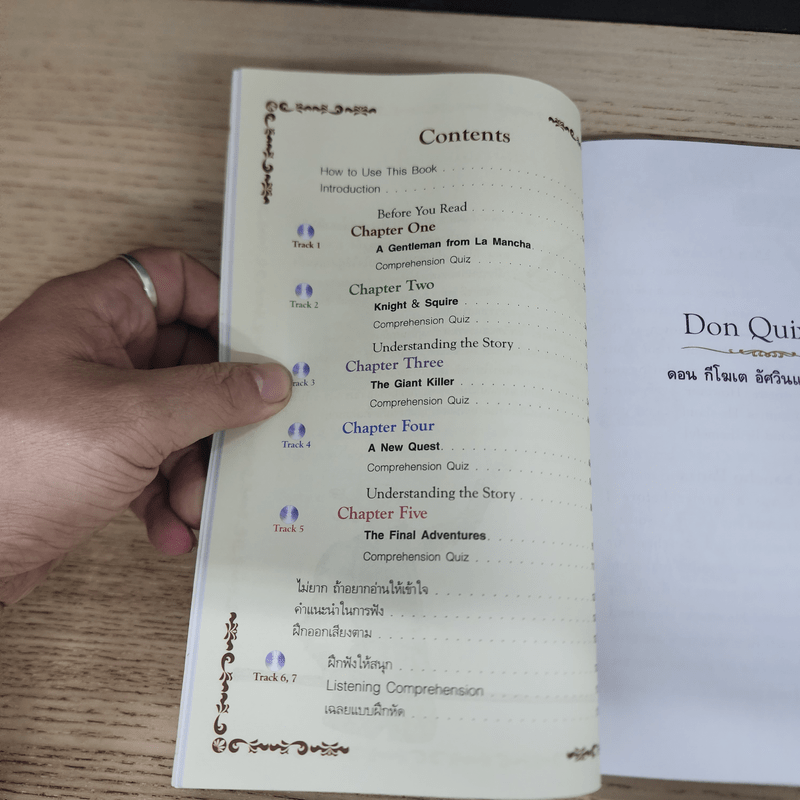 Contents
How to Use This Book
Introduction
Before You Read
Track 1
Chapter One
A Gentleman from La Mancha
Comprehension Quiz
Track 2
Chapter Two
Knight & Squire
Comprehension Quiz
Understanding the Story
Track 3
Chapter Three
The Giant Killer
Comprehension Quiz
Track 4
Chapter Four
A New Quest
Comprehension Quiz
Understanding the Story
Track 5
Chapter Five
The Final Adventures
Comprehension Quiz
ไม่ยาก ถ้าอยากอ่านให้เข้าใจ
คำแนะนำในการฟัง
ฝึกออกเสียงตาม
Track 6, 7
ฝึกฟังให้สนุก
Listening Comprehension
เฉลยแบบฝึกหัด
Don Qui
ดอน กีโฆเต อัศวิน